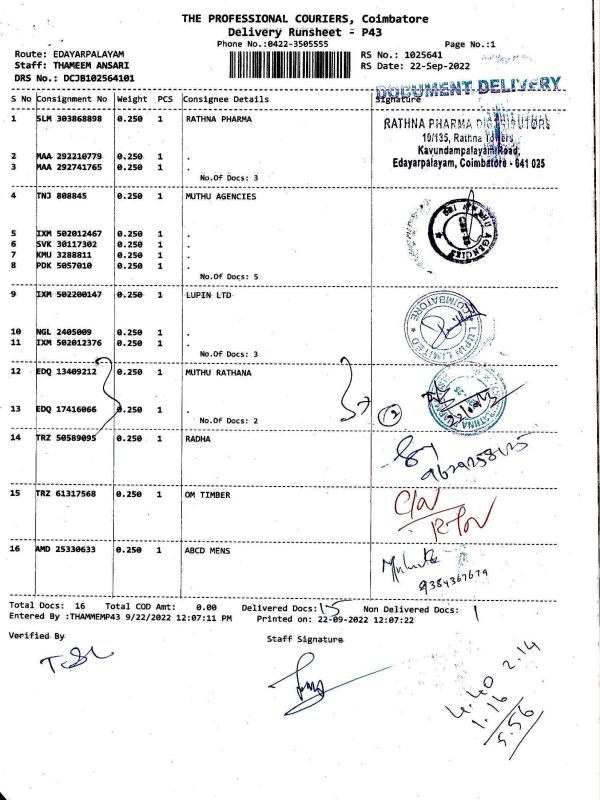 THE PROFESSIONAL COURIERS, Coimbatore
Delivery Runsheet - P43
Phone No.:0422-3505555 Page No.:1
Route: EDAYARPALAYAM RS No.: 1025641
Staff: THAMEEM ANSARI RS Date: 22-Sep-2022
DRS No.: DCJB102564101
DOCUMENT DELIVERY
S No Consignment No Weight PCS Consignee Details Signature
1 SLM 303868898 0.250 1 RATHNA PHARMA
RATHNA PHARMA DISTRIBUTORS
10/135, Rathna Towers
Kavundampalayam Road,
Edayarpalayam, Coimbatore - 641 025
2 MAA 292210779 0.250 1 .
3 MAA 292741765 0.250 1 .
No.Of Docs: 3
4 TNJ 808845 0.250 1 MUTHU AGENCIES
AGENCIES
5 IXM 502012467 0.250 1 .
6 SVK 30117302 0.250 1 .
7 KMU 3288811 0.250 1 .
8 PDK 5057010 0.250 1 .
No.Of Docs: 5
9 IXM 502200147 0.250 1 LUPIN LTD
COIMBATORE
LUPIN LIMITED
10 NGL 2405009 0.250 1 .
11 IXM 502012376 0.250 1 .
No.Of Docs: 3
12 EDQ 13409212 0.250 1 MUTHU RATHANA
13 EDQ 17416066 0.250 1 .
No.Of Docs: 2
2
14 TRZ 50589095 0.250 1 RADHA
15 TRZ 61317568 0.250 1 OM TIMBER
16 AMD 25330633 0.250 1 ABCD MENS
9384367679
Total Docs: 16 Total COD Amt: 0.00 Delivered Docs: 15 Non Delivered Docs: 1
Entered By :THAMMEMP43 9/22/2022 12:07:11 PM Printed on: 22-09-2022 12:07:22
Verified By Staff Signature
4.40 2.14
1.16
5.56